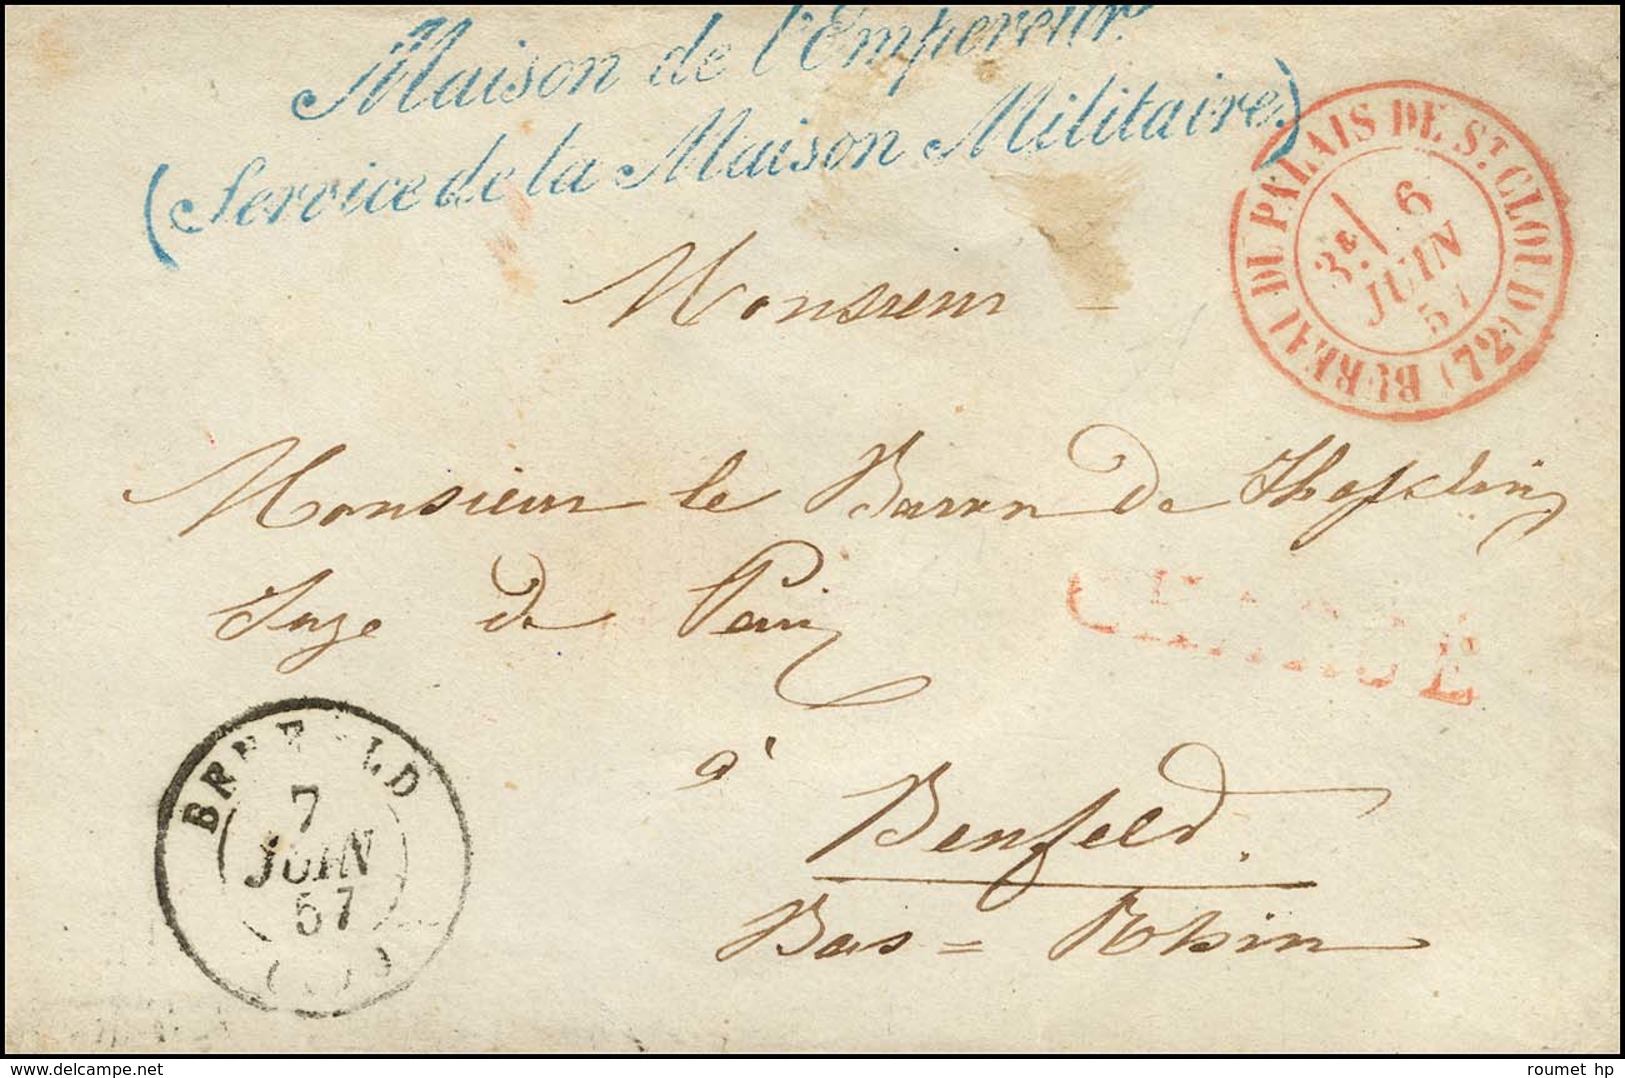 Maison de l'Empereur.
(Service de la Maison Militaire.)
BUREAU DU PALAIS DE ST. CLOUD (72)
3e/ 6
JUIN
57
Monsieur
Monsieur le Baron de
Juge de Paix
CHARGÉ
à
Benfeld.
Bas=Rhin
7
JUIN
57
www.delcampe.net
roumet hp